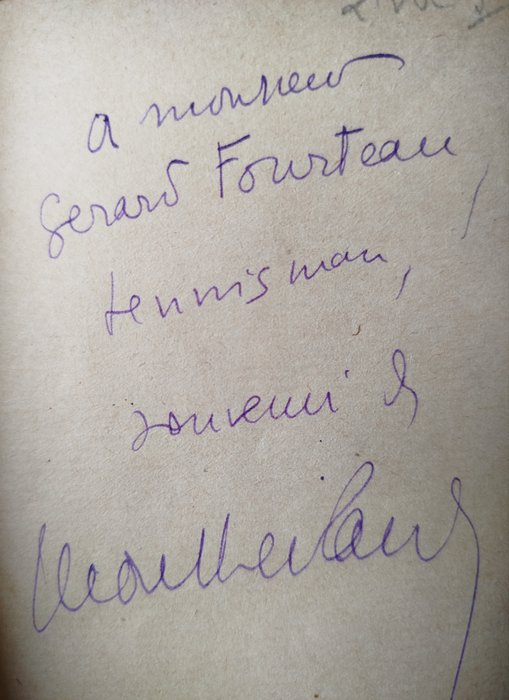 a monsieur
Gerard Fourteau,
tennisman,
souvenir de
Montherlant